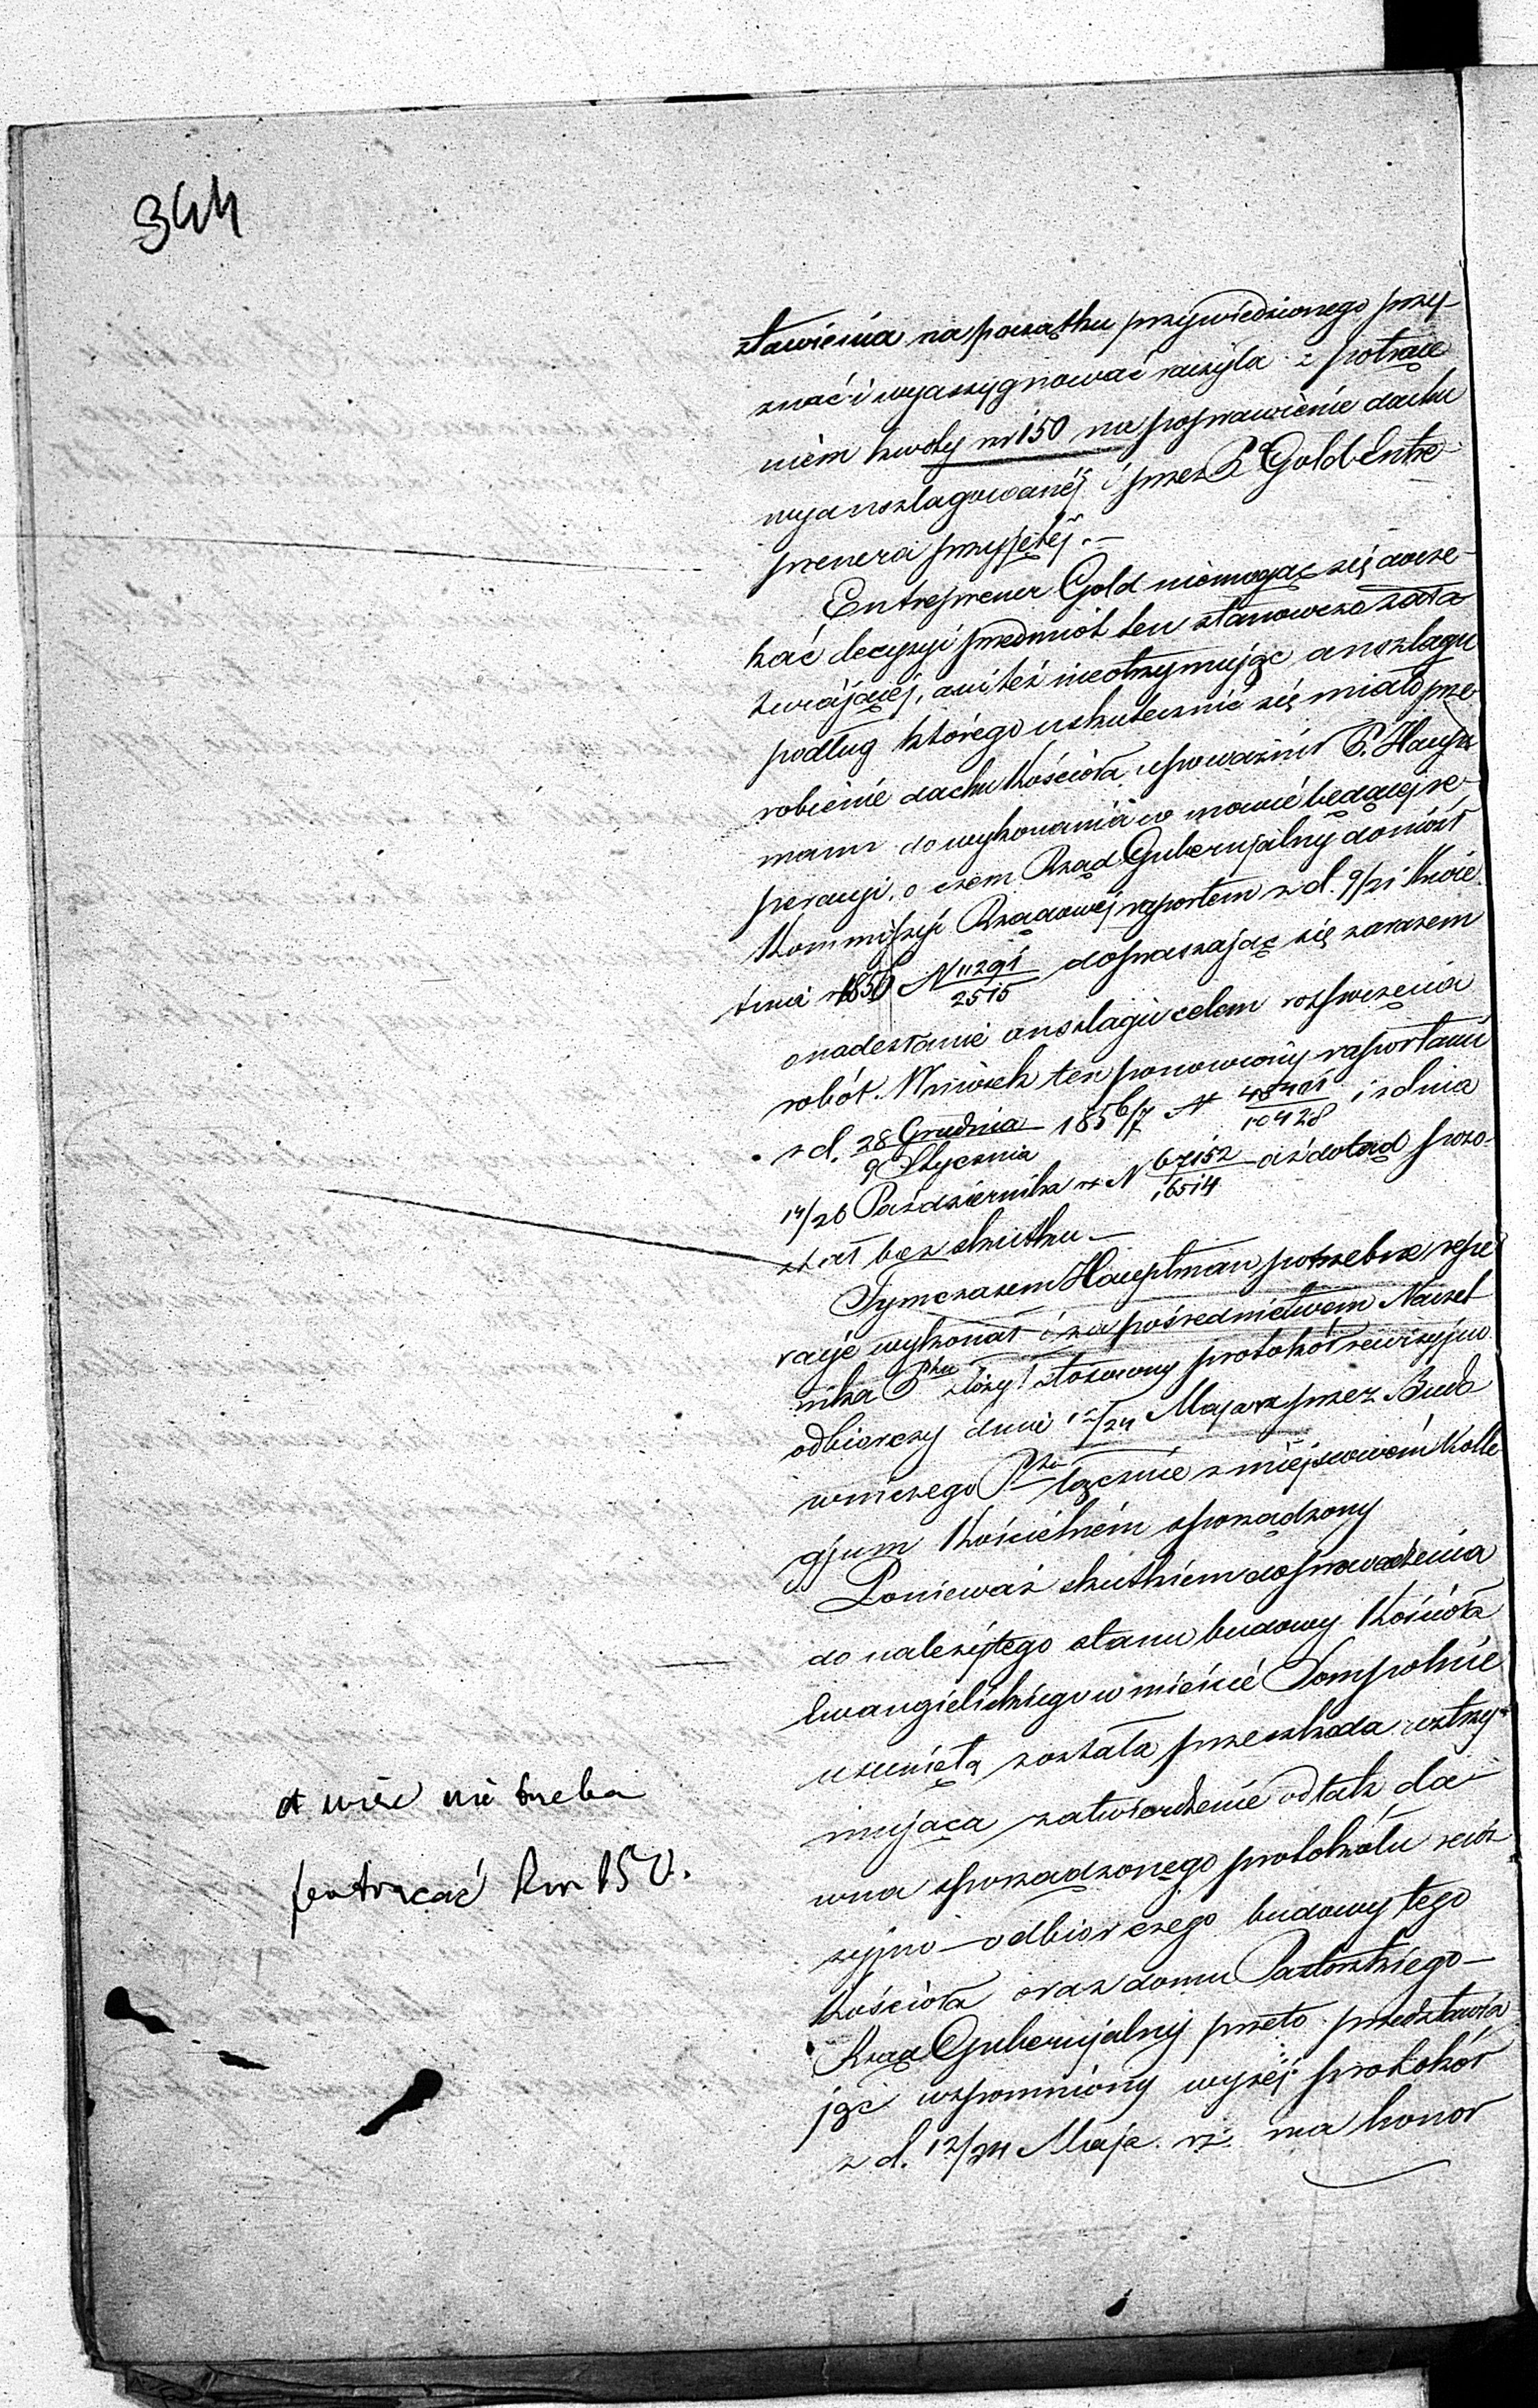 344
stawienia na początku przywiedzionego przy-
znać i wyassygnować raczyła z potrące
niem kwoty rs 150 na poprawienie dachu
wyanszlagowanéj i przez P. Gold Entre-
prenera przyjętéj. —
Entreprener Gold niemogąc się docze-
kać decyzyi przedmiot ten stanowczo zała
twiającéj, ani też nieotrzymując anszlagu
podług którego uskutecznić się miało prze
robienie dachu Kościoła, upoważnił P. Haupt
mann do wykonania w mowie będącej re-
peracyi, o czem Rząd Gubernjalny doniósł
Kommissyi Rządowéj raportem z d. 9/21 Kwie
tnia 1856 N 11291/2515 dopraszając się zarazem
o nadesłanie anszlagu celem rozpoczęcia
robót. Wniosek ten ponowiony raportami
z d. 28 Grudnia/9 Stycznia 1856/7 N /10428 i z dnia
14/26 Października r. N 67152/16514 aż dotąd pozo-
stał bez skutku —
Tymczasem Hauptman potrzebne repe
racje wykonał i za pośrednictwem Naczel
nika Ptu złożył stosowny protokół rewizyjno
odbiorczy dnia 12/24 Maja rz przez Budo
wniczego Ptu łącznie z miejscowém Kolle
gjum Kościelném sporządzony
Ponieważ skutkiem doprowadzenia
do należytego stanu budowy Kościoła
Ewangielickiego w mieście Sompolnie
usuniętą została przeszkoda wstrzy-
mująca zatwierdzenie od tak da-
wna sporządzonego protokółu rewi
zyjno-odbiorczego budowy tego
Kościoła oraz domu Pastorskiego —
Rząd Gubernjalny przeto przedstawia
jąc wspomniony wyżéj protokół
z d. 12/24 Maja rz. ma honor
a więc nie trzeba
potrącać Rsr 150.